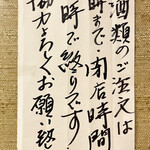 酒類のご注文は
時まで・閉店時間
時で終りです!
協力よろしくお願い致